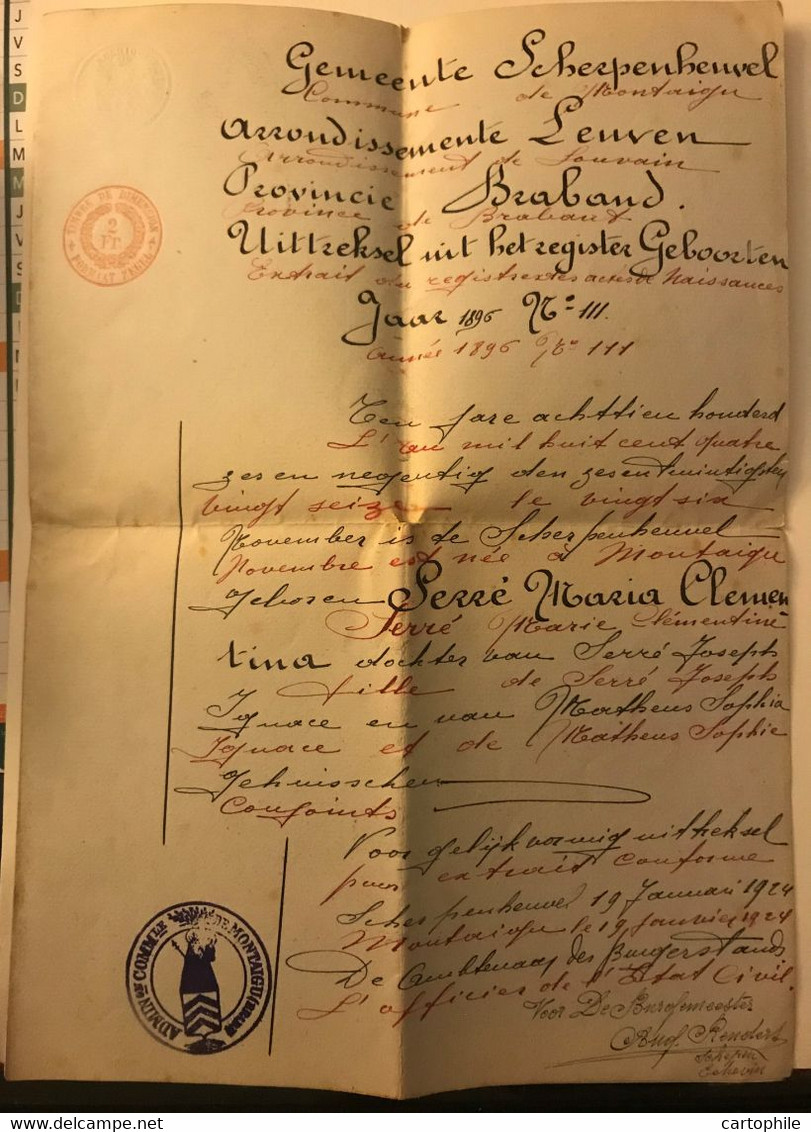 Gemeente Scherpenheuvel
Commune de Montaigu
Arrondissemente Leuven
Arrondissement de Louvain
Provincie Braband.
Province de Brabant
Uittreksel uit het register Geboorten
Extrait du registre des actes de Naissances
Jaar 1896 No 111.
Année 1896 No 111
TIMBRE DE DIMENSION
2 Fr.
Ten jare achttien honderd
L'an mil huit cent quatre
zes en negentig den zesentwintigsten
vingt seize le vingt six
November is te Scherpenheuvel
Novembre est née à Montaigu
geboren Serré Maria Clemen
Serré Marie Clémentine
tina dochter van Serré Joseph
fille de Serré Joseph
Ignace en van Matheus Sophia
Ignace et de Matheus Sophie
Gehuisschen
Conjoints
Voor gelijkvormig uittreksel
pour extrait conforme
Scherpenheuvel 19 Januari 1924
Montaigu le 19 Janvier 1924
De Ambtenaar des Burgerstands
L'officier de l'Etat Civil.
Voor De Burgemeester
Schepen
Echevin
ADMINon COMMLE DE MONTAIGU (BRABANT)
J
V
S
D
L
M
M
J
V
S
D
cartophile